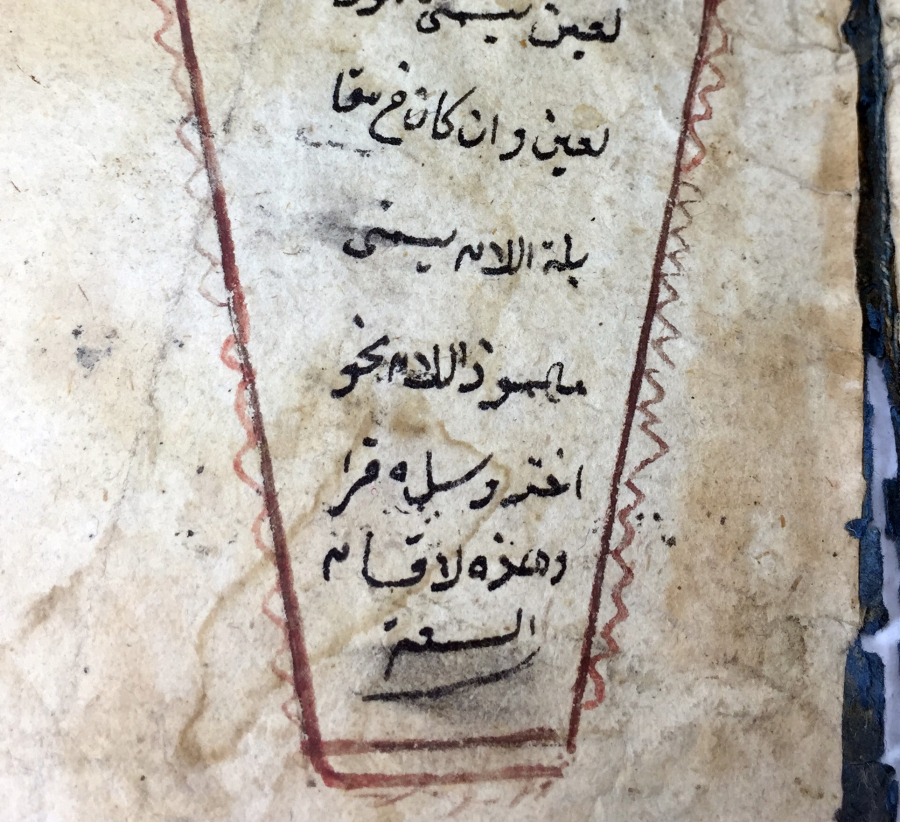 لعين يسمى
لعين وان كان في مقا
بلة اللام يسمى
مهموز اللام نحو
اخذ وسل ه قرا
وهذه لاقسام
السبعة